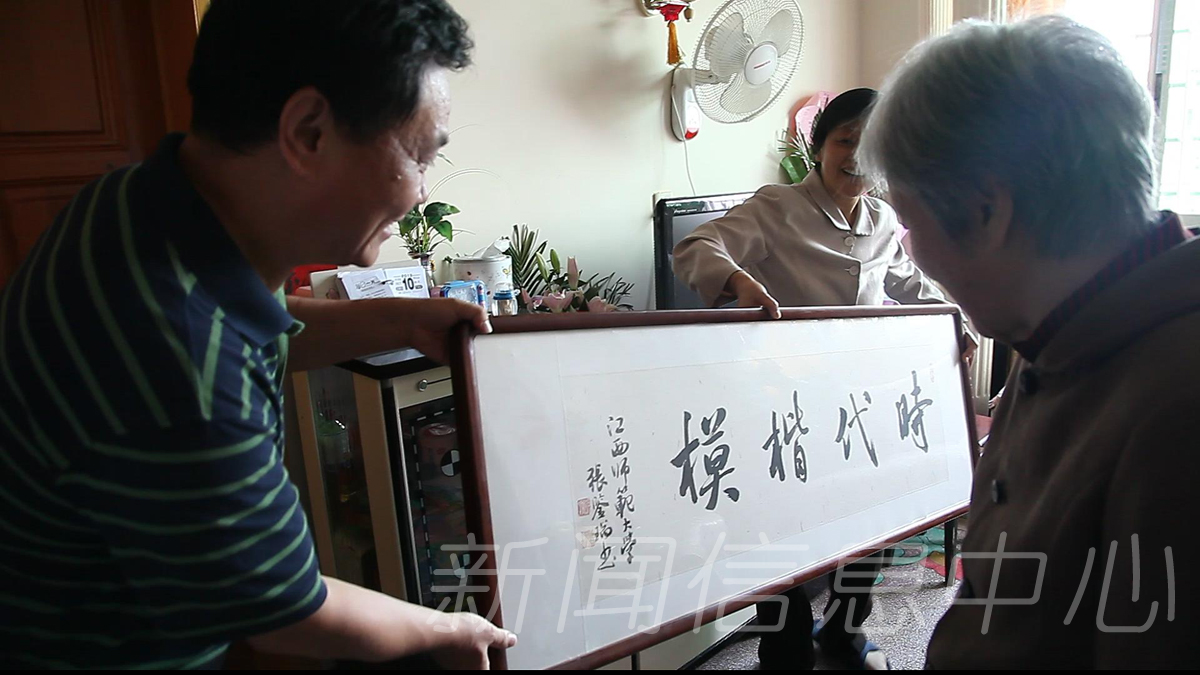 時代楷模
江西师範大学
張鏊瑞书
新闻信息中心
10